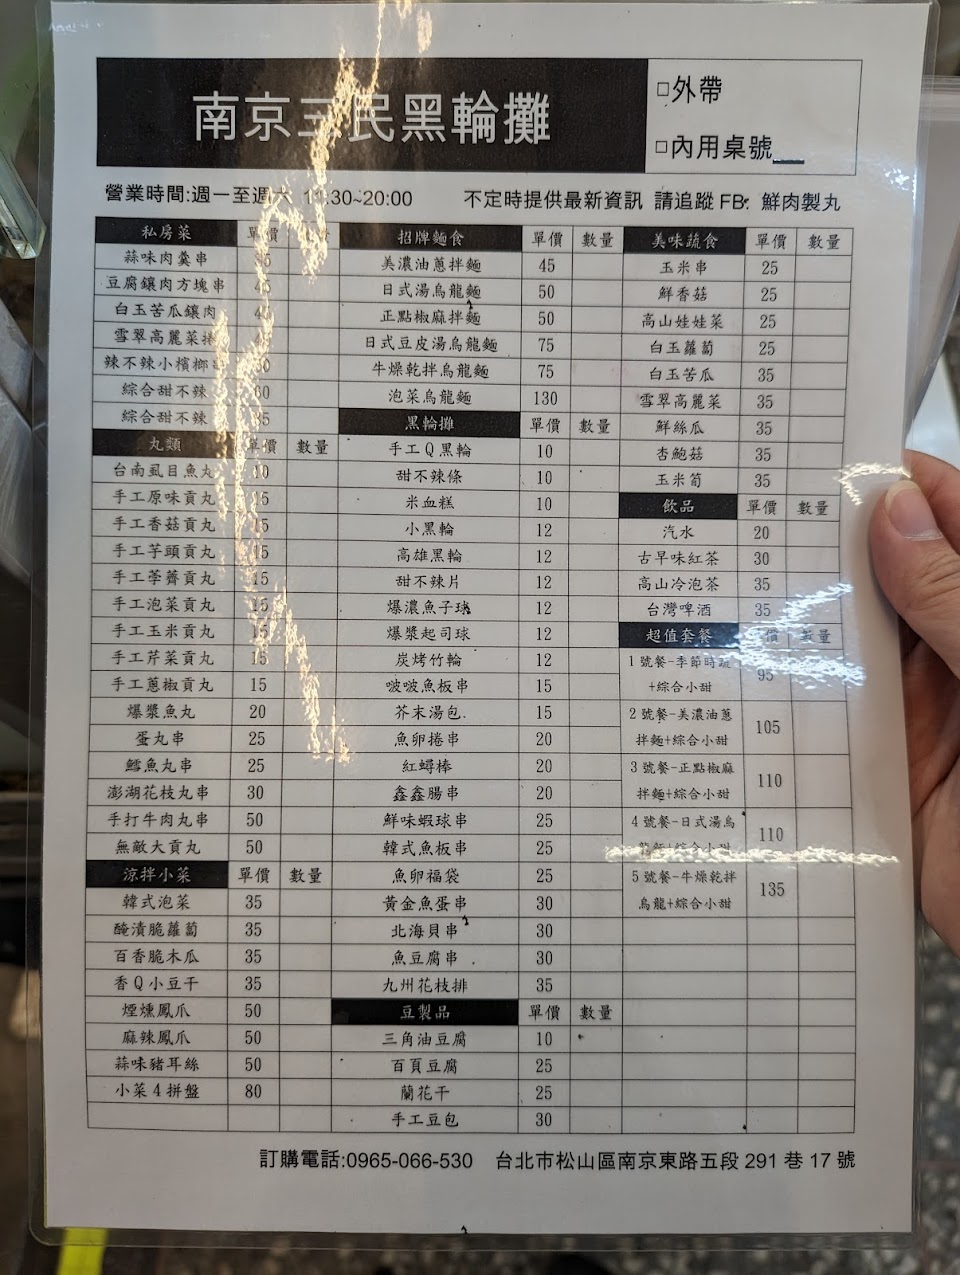 南京三民黑輪攤
□外帶
□內用桌號__
營業時間:週一至週六 11:30~20:00 不定時提供最新資訊 請追蹤 FB: 鮮肉製丸
私房菜 單價
蒜味肉羹串
豆腐鑲肉方塊串
白玉苦瓜鑲肉
雪翠高麗菜捲
辣不辣小檳榔
綜合甜不辣
綜合甜不辣
丸類 單價 數量
台南虱目魚丸 10
手工原味貢丸 15
手工香菇貢丸 15
手工芋頭貢丸 15
手工荸薺貢丸 15
手工泡菜貢丸 15
手工玉米貢丸 15
手工芹菜貢丸 15
手工蔥椒貢丸 15
爆漿魚丸 20
蛋丸串 25
鱈魚丸串 25
澎湖花枝丸串 30
手打牛肉丸串 50
無敵大貢丸 50
涼拌小菜 單價 數量
韓式泡菜 35
醃漬脆蘿蔔 35
百香脆木瓜 35
香Q小豆干 35
煙燻鳳爪 50
麻辣鳳爪 50
蒜味豬耳絲 50
小菜4拼盤 80
招牌麵食 單價 數量
美濃油蔥拌麵 45
日式湯烏龍麵 50
正點椒麻拌麵 50
日式豆皮湯烏龍麵 75
牛燥乾拌烏龍麵 75
泡菜烏龍麵 130
黑輪攤 單價 數量
手工Q黑輪 10
甜不辣條 10
米血糕 10
小黑輪 12
高雄黑輪 12
甜不辣片 12
爆濃魚子球 12
爆漿起司球 12
炭烤竹輪 12
啵啵魚板串 15
芥末湯包 15
魚卵捲串 20
紅蟳棒 20
鑫鑫腸串 20
鮮味蝦球串 25
韓式魚板串 25
魚卵福袋 25
黃金魚蛋串 30
北海貝串 30
魚豆腐串 30
九州花枝排 35
豆製品 單價 數量
三角油豆腐 10
百頁豆腐 25
蘭花干 25
手工豆包 30
美味蔬食 單價 數量
玉米串 25
鮮香菇 25
高山娃娃菜 25
白玉蘿蔔 25
白玉苦瓜 35
雪翠高麗菜 35
鮮絲瓜 35
杏鮑菇 35
玉米筍 35
飲品 單價 數量
汽水 20
古早味紅茶 30
高山冷泡茶 35
台灣啤酒 35
超值套餐 單價 數量
1號餐-季節時蔬
+綜合小甜 95
2號餐-美濃油蔥
拌麵+綜合小甜 105
3號餐-正點椒麻
拌麵+綜合小甜 110
4號餐-日式湯烏
龍麵+綜合小甜 110
5號餐-牛燥乾拌
烏龍+綜合小甜 135
訂購電話:0965-066-530 台北市松山區南京東路五段 291 巷 17 號